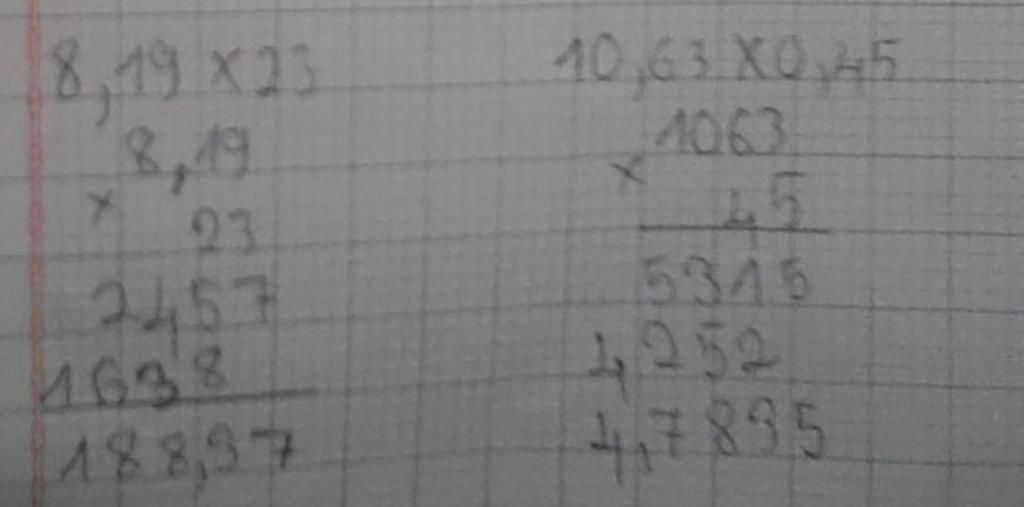 8,19 x 23
8,19
x 23
2457
1638
188,37
10,63 x 0,45
1063
x 45
5315
4252
4,7835